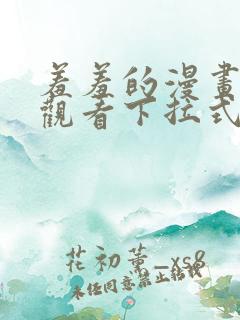 羞羞的漫畫
觀看下拉式
花初薰_xs8
未经同意禁止转载